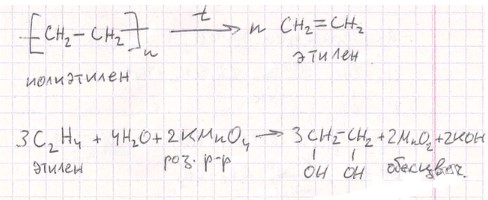 [CH₂-CH₂]ₙ —t→ n CH₂=CH₂
полиэтилен этилен
3C₂H₄ + 4H₂O + 2KMnO₄ → 3 CH₂-CH₂ + 2MnO₂ + 2KOH
этилен роз. р-р OH OH обесцвеч.